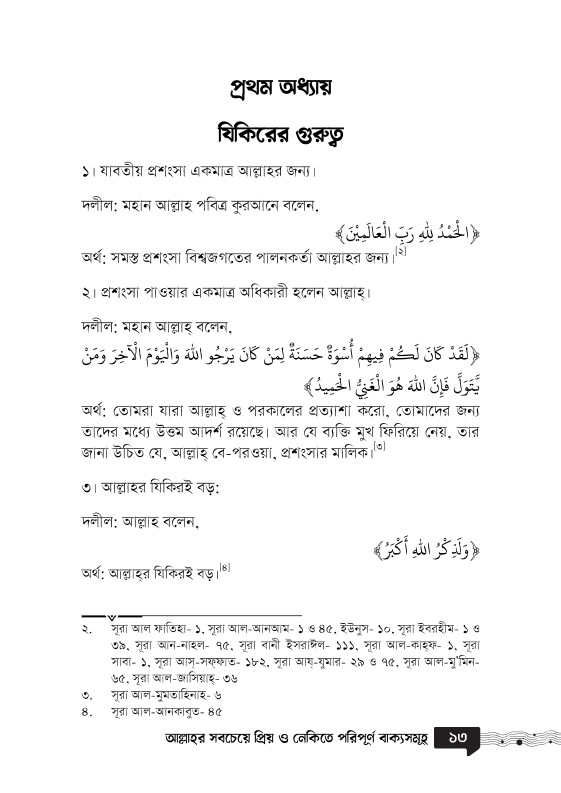 প্রথম অধ্যায়
যিকিরের গুরুত্ব
১। যাবতীয় প্রশংসা একমাত্র আল্লাহর জন্য।
দলীল: মহান আল্লাহ পবিত্র কুরআনে বলেন,
﴿الْحَمْدُ لِلّٰهِ رَبِّ الْعَالَمِيْنَ﴾
অর্থ: সমস্ত প্রশংসা বিশ্বজগতের পালনকর্তা আল্লাহর জন্য।[২]
২। প্রশংসা পাওয়ার একমাত্র অধিকারী হলেন আল্লাহ্।
দলীল: মহান আল্লাহ্ বলেন,
﴿لَقَدْ كَانَ لَكُمْ فِيهِمْ أُسْوَةٌ حَسَنَةٌ لِمَنْ كَانَ يَرْجُو اللهَ وَالْيَوْمَ الْآخِرَ وَمَنْ
يَّتَوَلَّ فَإِنَّ اللهَ هُوَ الْغَنِيُّ الْحَمِيدُ﴾
অর্থ: তোমরা যারা আল্লাহ্ ও পরকালের প্রত্যাশা করো, তোমাদের জন্য
তাদের মধ্যে উত্তম আদর্শ রয়েছে। আর যে ব্যক্তি মুখ ফিরিয়ে নেয়, তার
জানা উচিত যে, আল্লাহ্ বে-পরওয়া, প্রশংসার মালিক।[৩]
৩। আল্লাহর যিকিরই বড়:
দলীল: আল্লাহ বলেন,
﴿وَلَذِكْرُ اللهِ أَكْبَرُ﴾
অর্থ: আল্লাহ্‌র যিকিরই বড়।[৪]
২. সূরা আল ফাতিহা- ১, সূরা আল-আনআম- ১ ও ৪৫, ইউনুস- ১০, সূরা ইবরহীম- ১ ও
৩৯, সূরা আন-নাহল- ৭৫, সূরা বানী ইসরাঈল- ১১১, সূরা আল-কাহ্ফ- ১, সূরা
সাবা- ১, সূরা আস্-সফ্ফাত- ১৮২, সূরা আয্-যুমার- ২৯ ও ৭৫, সূরা আল-মু'মিন-
৬৫, সূরা আল-জাসিয়াহ্- ৩৬
৩. সূরা আল-মুমতাহিনাহ- ৬
৪. সূরা আল-আনকাবুত- ৪৫
আল্লাহর সবচেয়ে প্রিয় ও নেকিতে পরিপূর্ণ বাক্যসমূহ ১৩